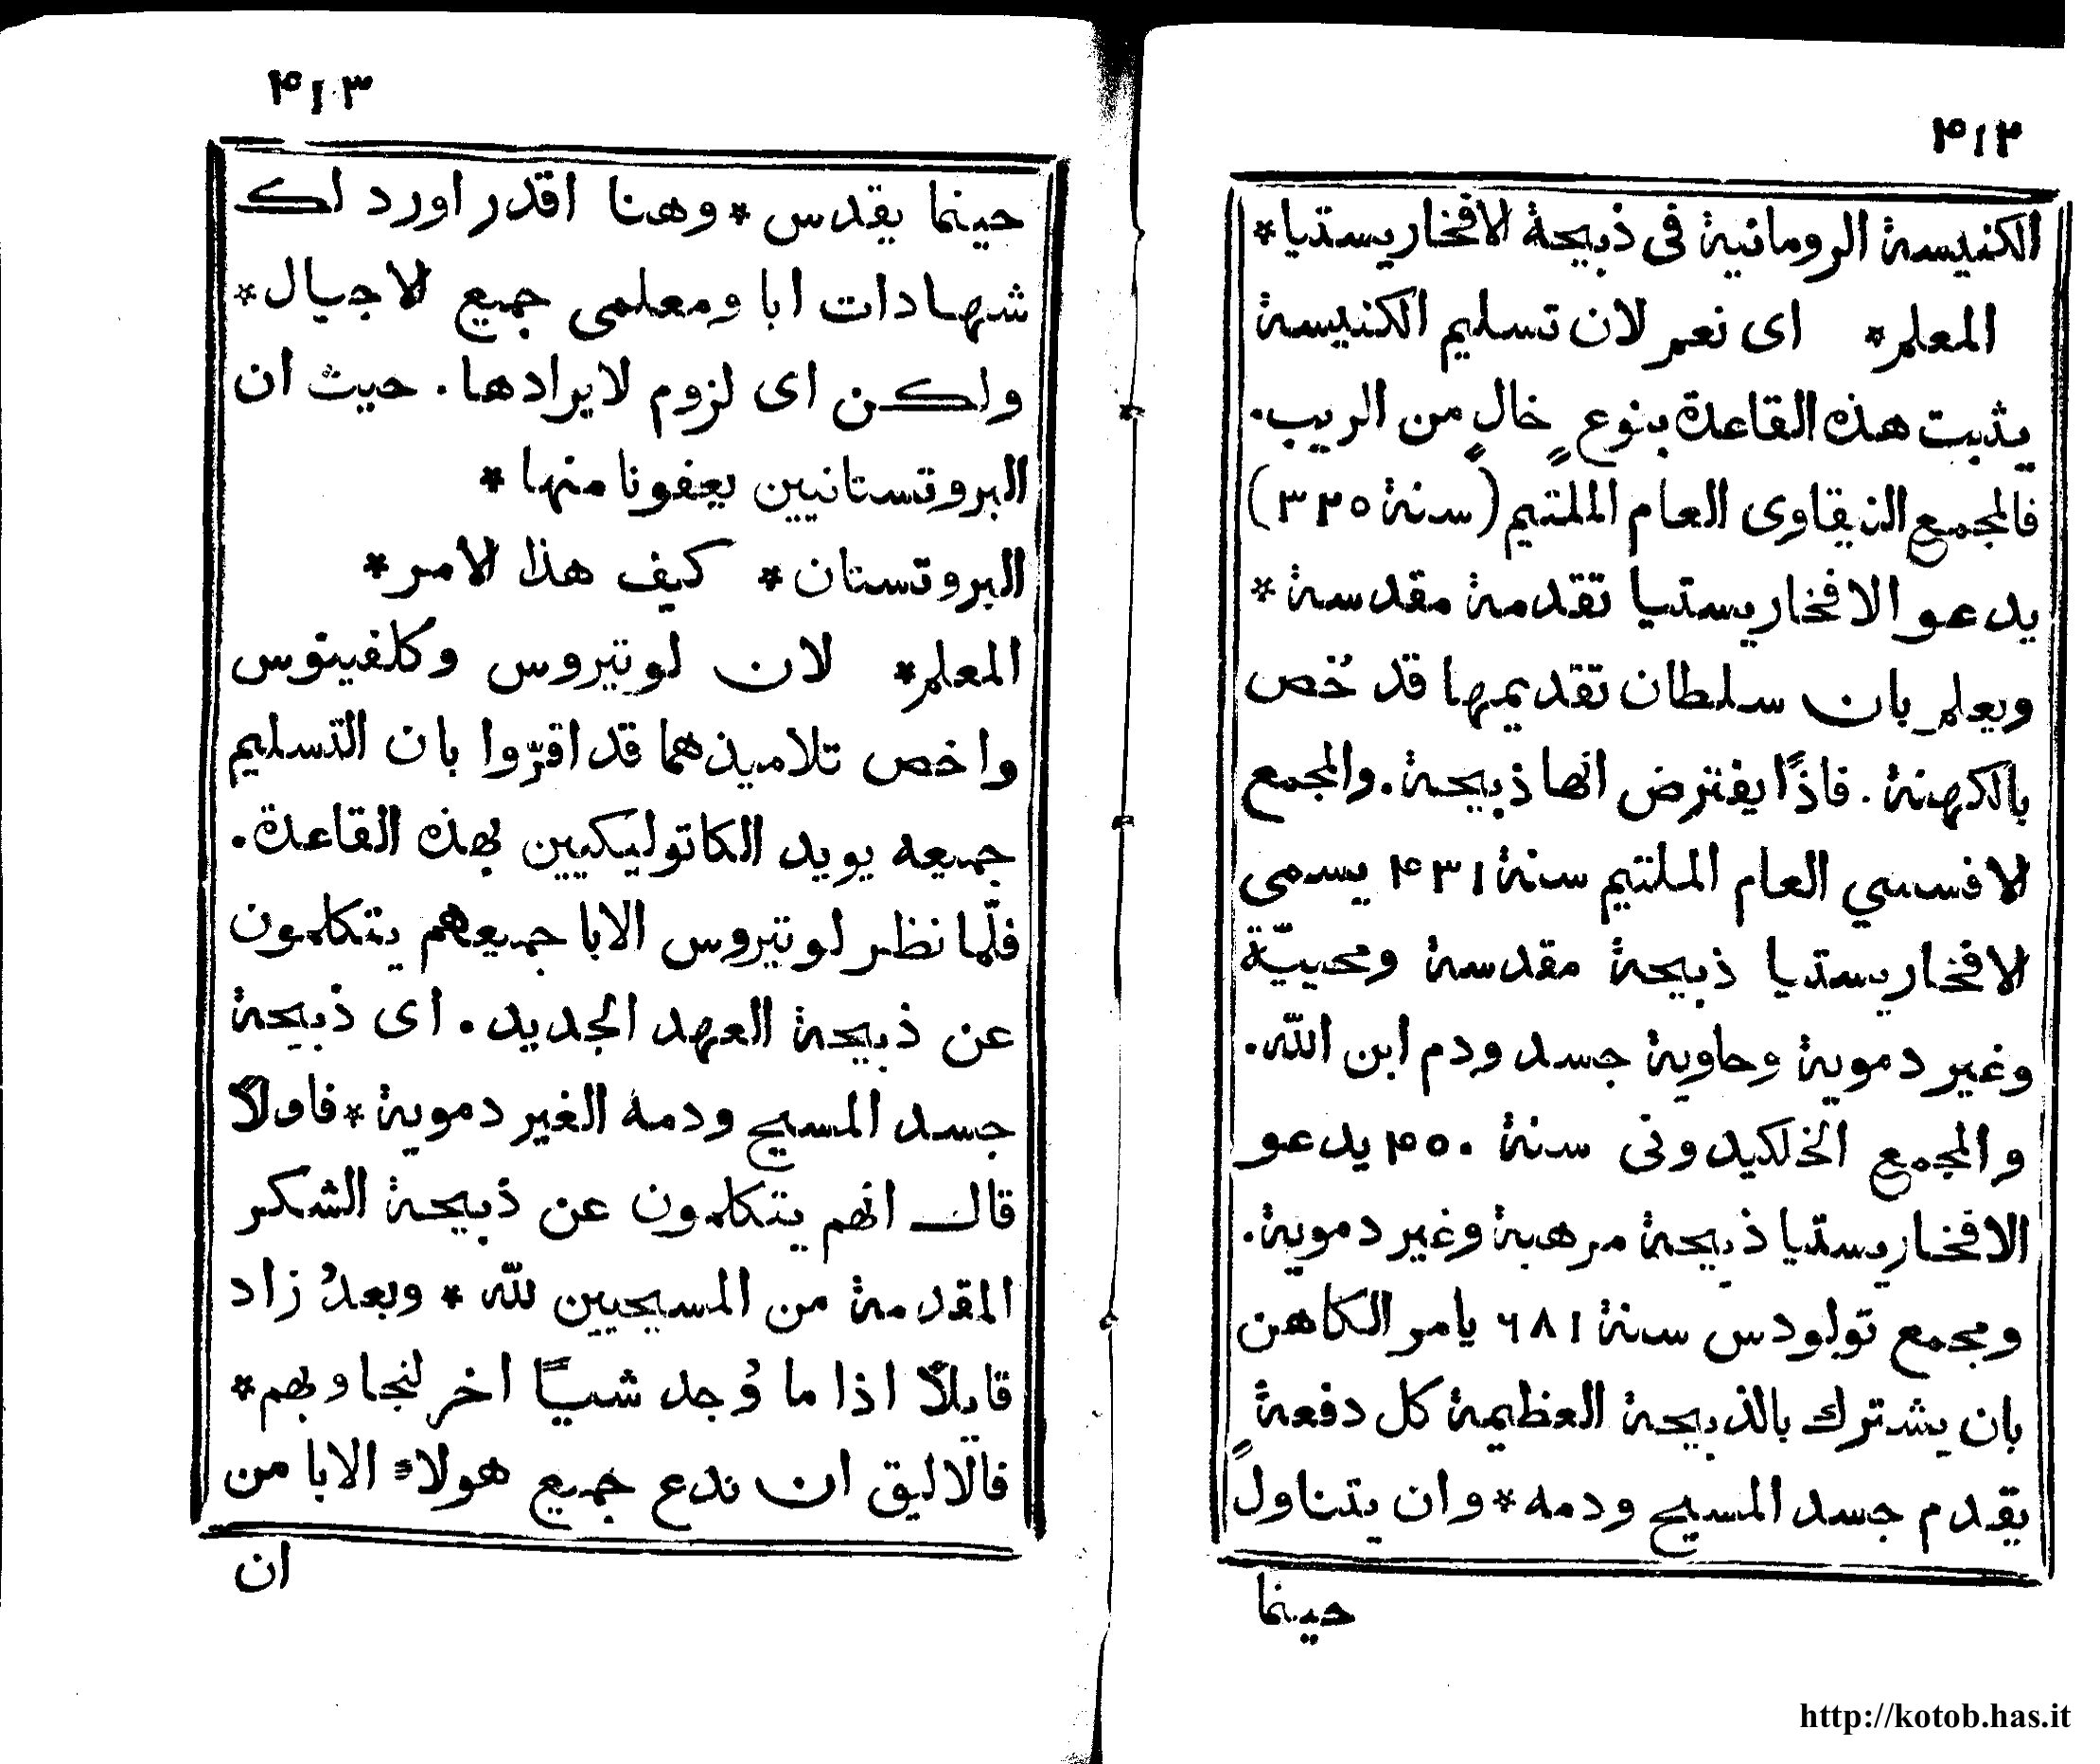 ۴۱۲
الكنيسة الرومانية فى ذبيحة الافخاريستيا*
المعلم* اى نعم لان تسليم الكنيسة
يثبت هذه القاعدة بنوعٍ خالٍ من الريب.
فالمجمع النيقاوى العام الملتيم (سنة ۳۲٥)
يدعو الافخاريستيا تقدمة مقدسة *
ويعلم بان سلطان تقديمها قد خُص
بالكهنة. فاذًا يفترض انها ذبيحة. والمجمع
الافسسي العام الملتيم سنة ۴۳۱ يسمى
الافخاريستيا ذبيحة مقدسة ومحييّة
وغير دموية وحاوية جسد ودم ابن الله.
والمجمع الخلكيدونى سنة ۴٥۰ يدعو
الافخاريستيا ذبيحة مرهبة وغير دموية.
ومجمع تولودس سنة ٦٨١ يامر الكاهن
بان يشترك بالذبيحة العظيمة كل دفعةٍ
يقدم جسد المسيح ودمه * وان يتناول
حينما
۴۱۳
حينما يقدس * وهنا اقدر اورد لك
شهادات ابا ومعلمى جميع الاجيال*
ولكن اى لزوم لايرادها. حيث ان
البروتستانيين يعفونا منها *
البروتستان* كيف هذا الامر*
المعلم* لان لوتيروس وكلفينوس
واخص تلاميذهما قد اقرّوا بان التسليم
جميعه يويد الكاتوليكيين بهذه القاعدة.
فلّما نظر لوتيروس الابا جميعهم يتكلمون
عن ذبيحة العهد الجديد. اى ذبيحة
جسد المسيح ودمه الغير دموية * فاولاً
قال انهم يتكلمون عن ذبيحة الشكر
المقدمة من المسيحيين لله * وبعدُ زاد
قايلاً اذا ما وُجد شيًا اخر لنجاوبهم*
فالاليق ان ندع جميع هولاء الابا من
ان
http://kotob.has.it